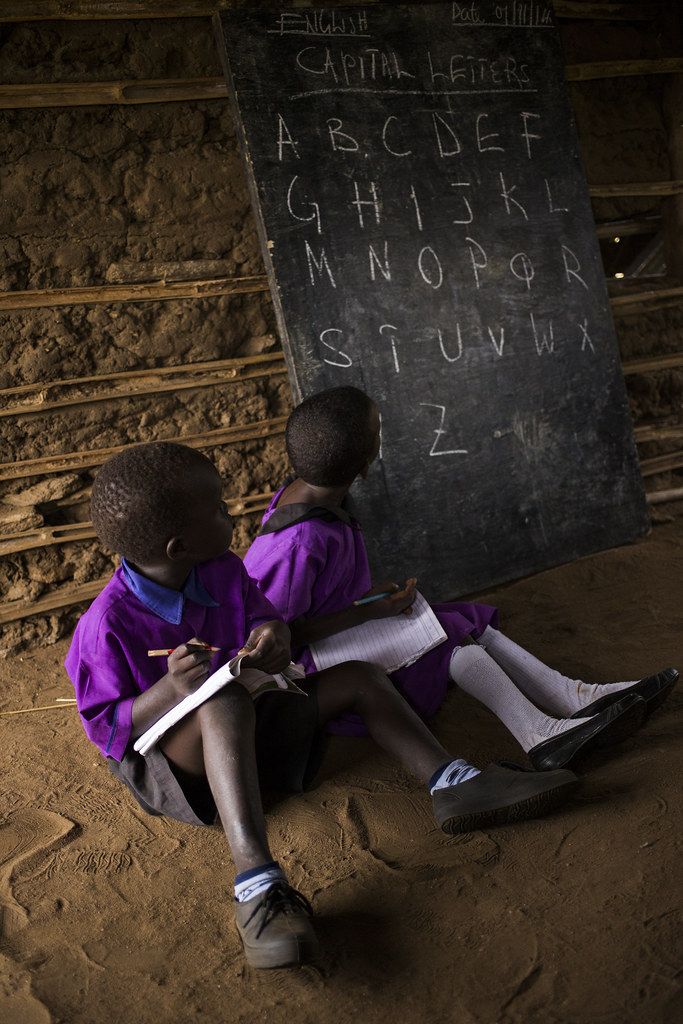 ENGLISH Date 01/11/12
CAPITAL LETTERS
A B C D E F
G H I J K L
M N O P Q R
S T U V W X
Z